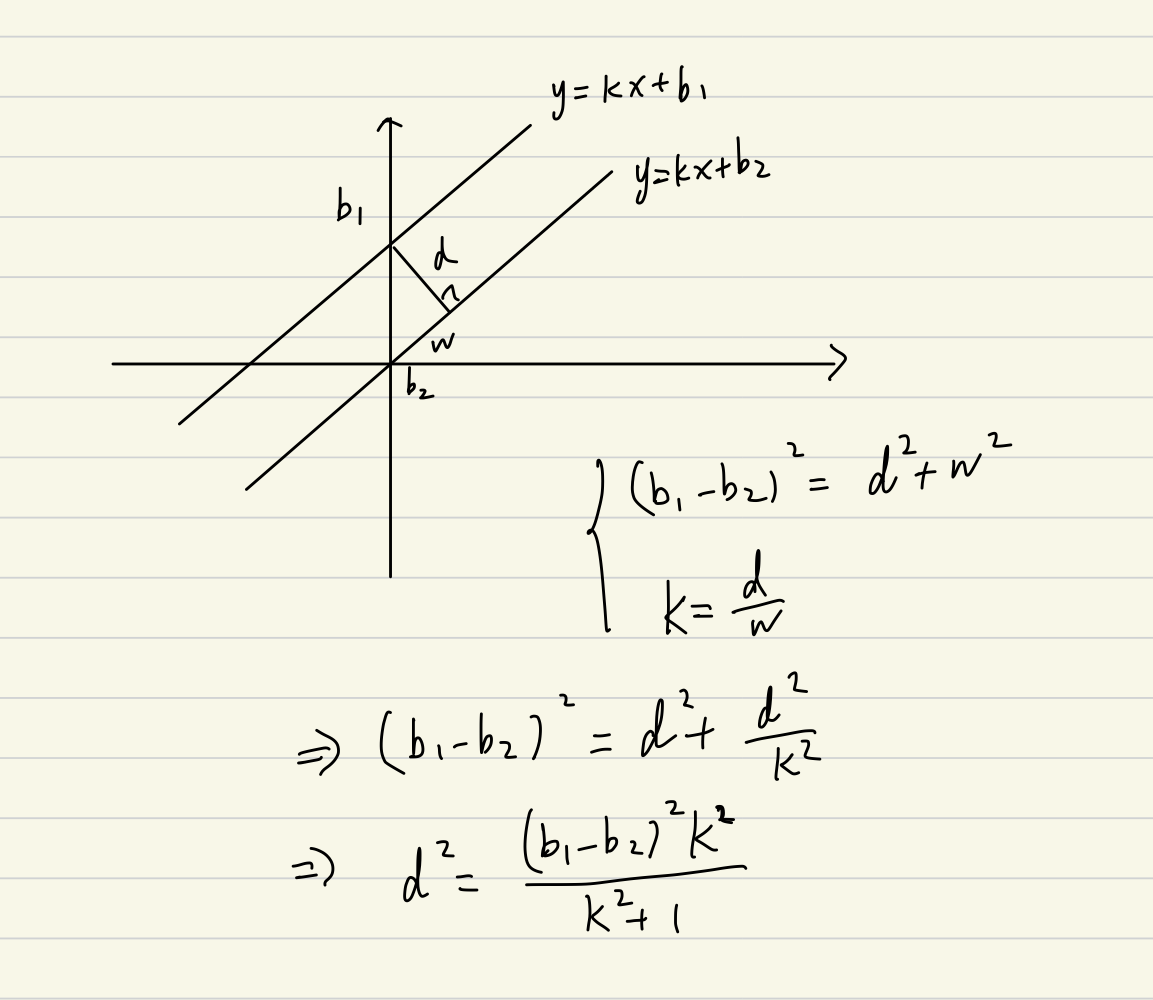 y = kx + b₁
y = kx + b₂
b₁
d
w
b₂
(b₁ - b₂)² = d² + w²
k = d/w
⇒ (b₁ - b₂)² = d² + d²/k²
⇒ d² = (b₁ - b₂)² k² / (k² + 1)